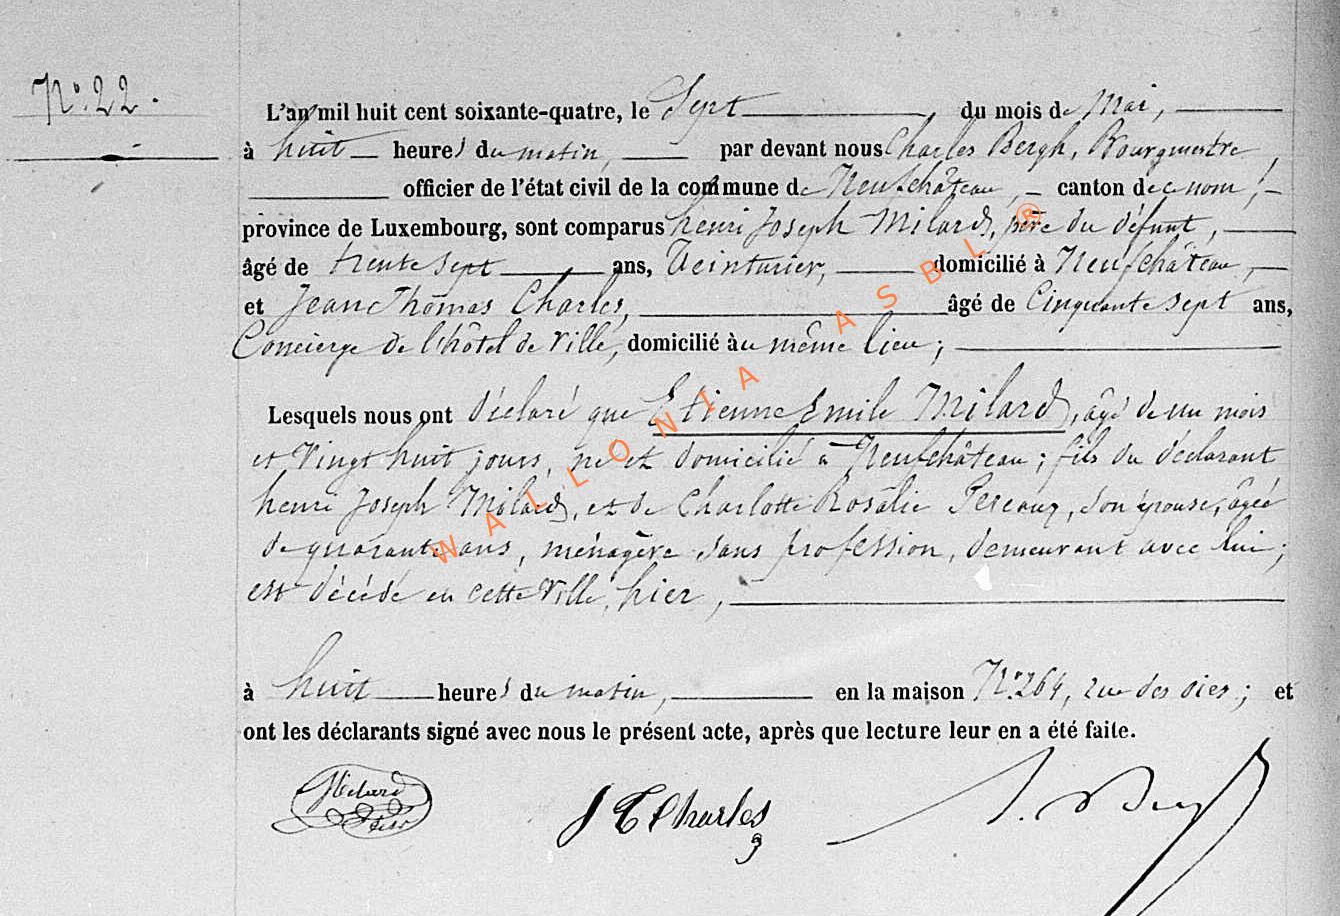 N° 22.
L'an mil huit cent soixante-quatre, le Sept du mois de Mai,
à huit heures du matin, par devant nous Charles Bergh, Bourgmestre,
officier de l'état civil de la commune de Neufchâteau, canton de ce nom,
province de Luxembourg, sont comparus henri Joseph Milard, père du défunt,
âgé de trente sept ans, Teinturier, domicilié à Neufchâteau,
et Jean Thomas Charles, âgé de Cinquante sept ans,
Concierge de l'hôtel de Ville, domicilié au même lieu;
Lesquels nous ont déclaré que Etienne Emile Milard, âgé de un mois
et Vingt huit jours, né et domicilié à Neufchâteau; fils du déclarant
henri Joseph Milard, et de Charlotte Rosalie, son épouse, âgée
de quarante ans, ménagère sans profession, demeurant avec lui;
est décédé en cette Ville, hier,
à huit heures du matin, en la maison N° 264, rue des oies; et
ont les déclarants signé avec nous le présent acte, après que lecture leur en a été faite.
Milard JTCharles
WALLONIA ASBL ®